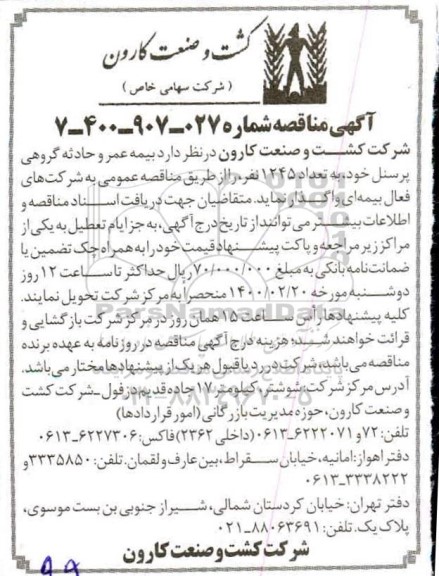 کشت و صنعت کارون
( شرکت سهامی خاص )
آگهی مناقصه شماره ۰۲۷-۹۰۷-۴۰۰-۷
شرکت کشت و صنعت کارون در نظر دارد بیمه عمر و حادثه گروهی
پرسنل خود، به تعداد ۱۲۴۵ نفر، را از طریق مناقصه عمومی به شرکت‌های
فعال بیمه‌ای واگذار نماید. متقاضیان جهت دریافت اسناد مناقصه و
اطلاعات بیشتر می‌توانند از تاریخ درج آگهی، به جز ایام تعطیل به یکی از
مراکز زیر مراجعه و پاکت پیشنهاد قیمت خود را به همراه چک تضمین یا
ضمانت نامه بانکی به مبلغ ۷۰/۰۰۰/۰۰۰ ریال حداکثر تا ساعت ۱۲ روز
دوشنبه مورخه ۱۴۰۰/۰۲/۲۰ منحصراً به مرکز شرکت تحویل نمایند.
کلیه پیشنهادها رأس ساعت ۱۵ همان روز در مرکز شرکت بازگشایی و
قرائت خواهند شد؛ هزینه درج آگهی مناقصه در روزنامه به عهده برنده
مناقصه می‌باشد، شرکت در رد یا قبول هر یک از پیشنهادها مختار می‌باشد.
آدرس مرکز شرکت: شوشتر، کیلومتر ۱۷ جاده قدیم دزفول ـ شرکت کشت
و صنعت کارون، حوزه مدیریت بازرگانی (امور قراردادها)
تلفن: ۷۲ و ۶۲۲۲۰۷۱-۰۶۱۳ (داخلی ۲۳۶۲) فاکس: ۶۲۲۷۳۰۶-۰۶۱۳
دفتر اهواز: امانیه، خیابان سقراط، بین عارف و لقمان. تلفن: ۳۳۳۵۸۵۰ و
۳۳۳۸۲۲۲-۰۶۱۳
دفتر تهران: خیابان کردستان شمالی، شیراز جنوبی بن بست موسوی،
پلاک یک. تلفن: ۸۸۰۶۳۶۹۱-۰۲۱
شرکت کشت و صنعت کارون